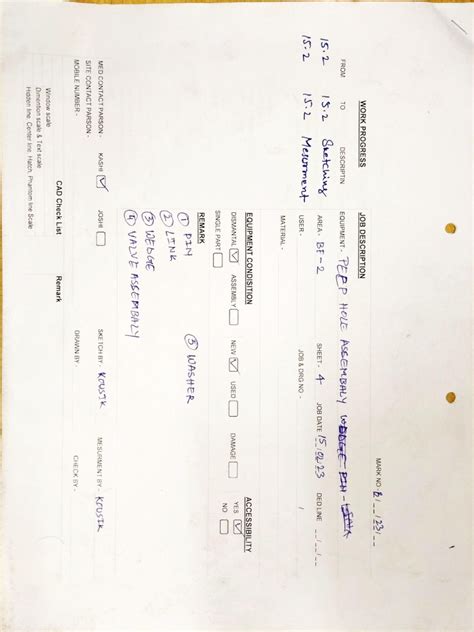 MARK NO- B/__/23/__
WORK PROGRESS
FROM TO DESCRIPTIN
15.2 15.2 Sketching
15.2 15.2 Mesurment
JOB DESCRIPTION
EQUIPMENT- PEEP HOLE ASSEMBALY
AREA- BF-2 SHEET- 4 JOB DATE 15/02/23 DED LINE __/__/__
USER- JOB & DRG NO-
MATERIAL-
EQUIPMENT CONDITION ACCESSIBILITY
DISMANTAL ☑ ASSEMBLY ☐ NEW ☑ USED ☐ DAMAGE ☐ YES ☑
SINGLE PART ☐ NO ☐
REMARK
① PIN ⑤ WASHER
② LINK
③ WEDGE
④ VALVE ASSEMBALY
MED CONTACT PARSON- KASHI ☑ JOSHI ☐ SKETCH BY- KOUSIK MESURMENT BY- KOUSIK
SITE CONTACT PARSON- DRAWN BY- CHECK BY-
MOBILE NUMBER-
CAD Check List Remark
Window scale
Dimention scale & Text scale
Hidden line, Center line, Hatch, Phantom line Scale